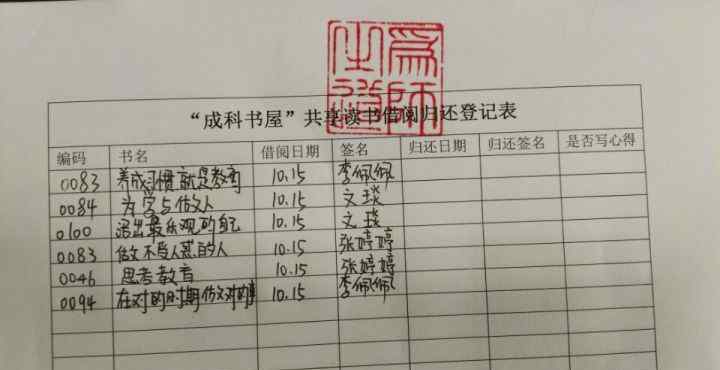 为师之道
“成科书屋”共享读书借阅归还登记表
编码 书名 借阅日期 签名 归还日期 归还签名 是否写心得
0083 养成习惯就是教育 10.15 李佩佩
0084 为学与做人 10.15 文琰
0100 活出最乐观的自己 10.15 文琰
0083 做不与人惹的人 10.15 张婷婷
0046 思考教育 10.15 张婷婷
0094 在对的时期做对的事 10.15 李佩佩